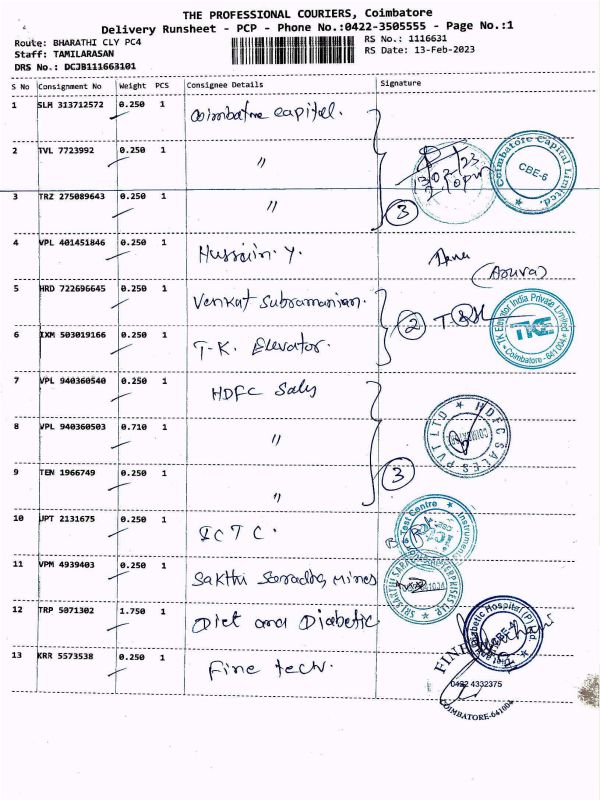 THE PROFESSIONAL COURIERS, Coimbatore
Delivery Runsheet - PCP - Phone No.:0422-3505555 - Page No.:1
Route: BHARATHI CLY PC4 RS No.: 1116631
Staff: TAMILARASAN RS Date: 13-Feb-2023
DRS No.: DCJB111663101
S No Consignment No Weight PCS Consignee Details Signature
1 SLM 313712572 0.250 1 Coimbatore Capital.
2 TVL 7723992 0.250 1 "
13/02/23
2.10pm
Coimbatore Capital Limited.
CBE-6
3 TRZ 275089643 0.250 1 "
3
4 VPL 401451846 0.250 1 Hussain. Y.
(Aruva)
5 HRD 722696645 0.250 1 Venkat Subramanian.
2
TK Elevator India Private Limited
TKE
Coimbatore - 641 004
6 IXM 503019166 0.250 1 T-K. Elevator.
7 VPL 940360540 0.250 1 HDFC Sales
8 VPL 940360503 0.710 1 "
HDFC SALES PVT LTD
9 TEN 1966749 0.250 1 "
3
10 JPT 2131675 0.250 1
Test Centre
11 VPM 4939403 0.250 1 Sakthi Saradha Mines
12 TRP 5071302 1.750 1 Diet and Diabetic
Diabetic Hospital (P) Ltd.
13 KRR 5573538 0.250 1 Fine tech.
FINE
0422 4332375
COIMBATORE-641004